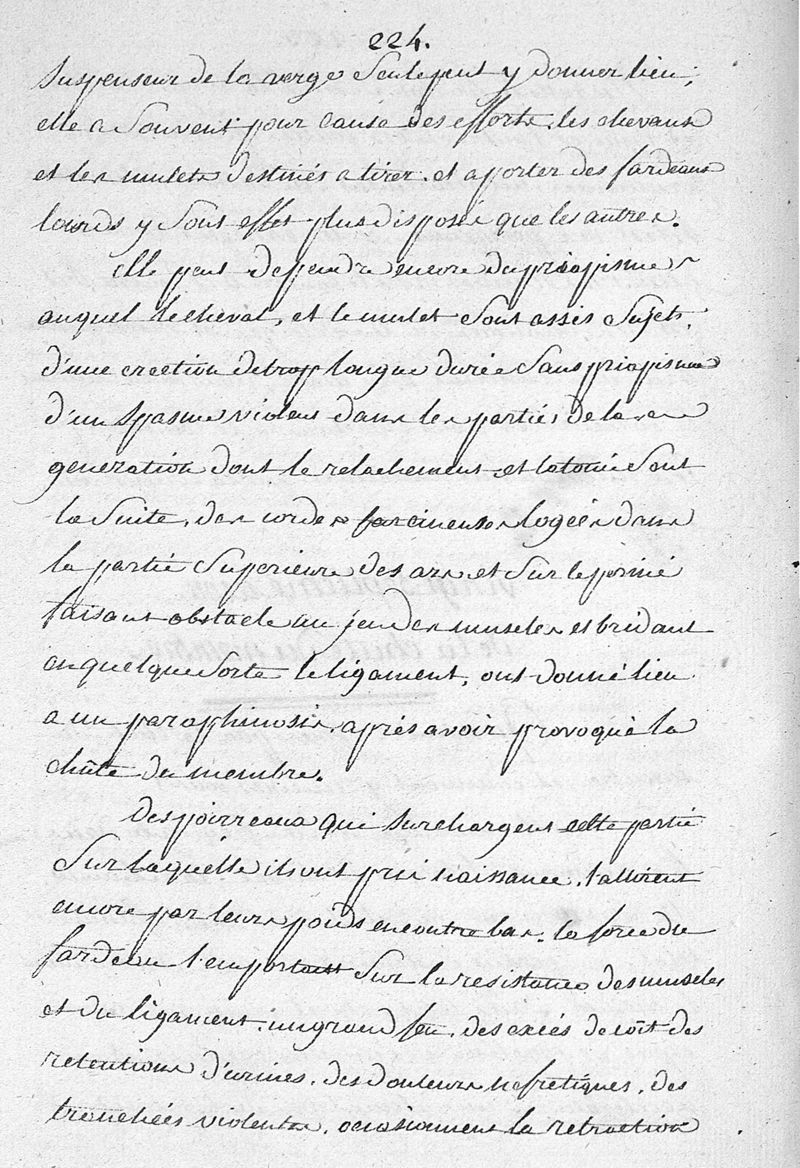 224.
Suspenseur de la verge seule peut y donner lieu;
elle a souvent pour cause des efforts. les chevaux
et les mulets destinés a tirer. et a porter des fardeaux
lourds y sont effet plus disposés que les autres.
Elle peut dependre encore du priapisme
auquel le cheval, et le mulet sont assés sujets,
d'une erection de trop longue durée sans priapisme
d'un spasme violent dans les parties de la
generation dont le relachement et latonie sont
la suite, des cordes farcineuses logées dans
la partie superieure des ars et sur le periné
faisant obstacle au jeu des muscles et bridant
en quelque sorte le ligament, ont donné lieu
a un paraphimosis. aprés avoir provoqué la
chûte du membre.
Des poirreaux qui surchargent cette partie
sur laquelle ils ont pris naissance. l'attirent
encore par leurs poids en contre bas. la force du
fardeau l'emportant sur la resistance des muscles
et du ligament. un grand feu, des excés de coït des
retentions d'urines. des douleurs nefretiques, des
tranchées violentes, occasionnent la retraction